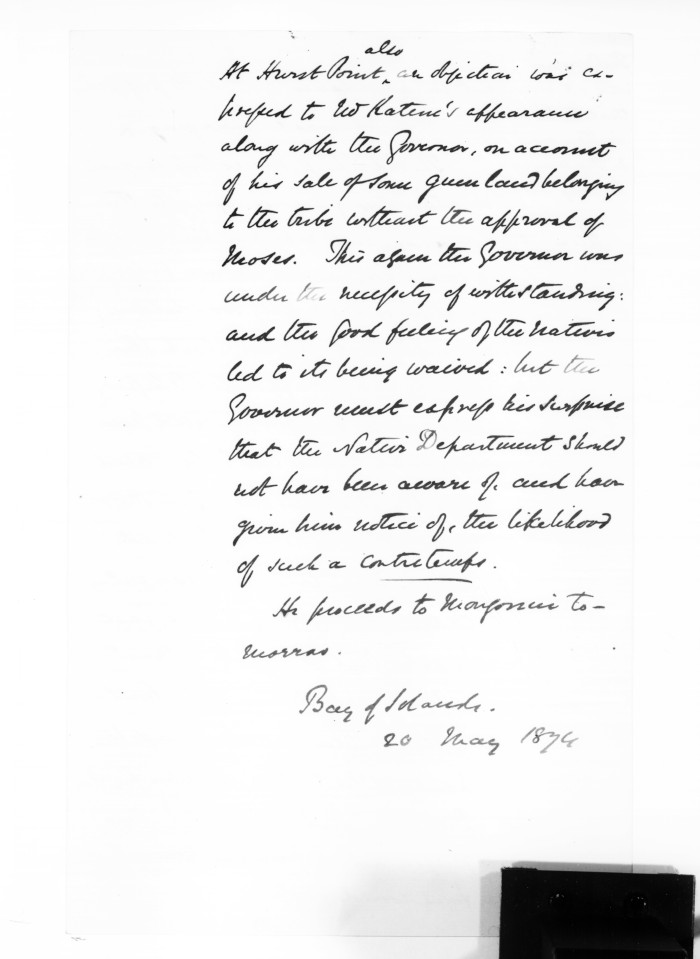 also
At Hurst Point, an objection was ex-
pressed to Wi Katene's appearance
along with the Governor, on account
of his sale of some gum land belonging
to the tribe without the approval of
Moses. This again the Governor was
under the necessity of withstanding:
and the good feeling of the Natives
led to its being waived: but the
Governor must express his surprise
that the Native Department should
not have been aware of, and have
given him notice of, the likelihood
of such a contretemps.
He proceeds to Mongonui to-
morrow.
Bay of Islands.
20 May 1874